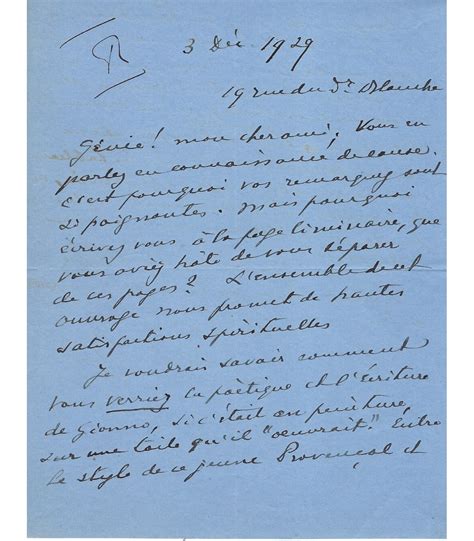 R
3 Déc. 1929
19 rue du Dr Blanche
Génie! mon cher ami, Vous en
parlez en connaissance de cause.
c'est pourquoi vos remarques sont
si poignantes. Mais pourquoi
écrivez vous, à la page liminaire, que
vous aviez hâte de vous séparer
de ces pages? L'ensemble de cet
ouvrage nous promet de hautes
satisfactions spirituelles
Je voudrais savoir comment
vous verriez la poëtique et l'Écriture
de Gionno, si c'était en peinture,
sur une toile qu'il "oeuvrait". Entre
le style de ce jeune Provençal et